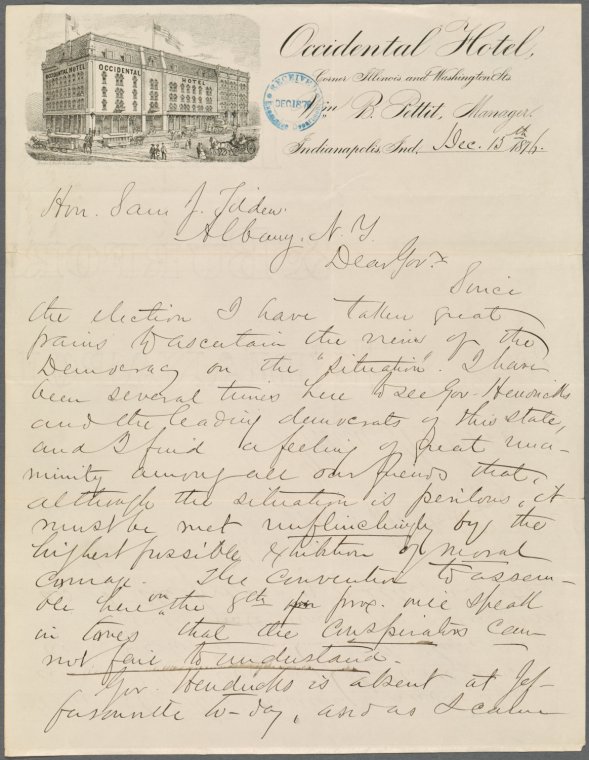 OCCIDENTAL HOTEL
OCCIDENTAL
HOTEL
Occidental Hotel,
Corner Illinois and Washington Sts.
RECEIVED
DEC 18 76
B. Pettit, Manager.
Indianapolis, Ind. Dec. 15th 1876.
Hon. Sam J. Tilden.
Albany, N. Y
Dear Gov.
Since
the election I have taken great
pains to ascertain the views of the
Democracy on the "situation". I have
been several times here to see Gov. Hendricks
and the leading democrats of this state,
and I find a feeling of great una-
nimity among all our friends that,
although the situation is perilous, it
must be met unflinchingly by the
highest possible exhibition of moral
courage. The convention to assem-
ble here on the 8th prox. will speak
in tones that the conspirators can
not fail to understand.
Gov. Hendricks is absent at Jef-
fersonville to-day, and as I came